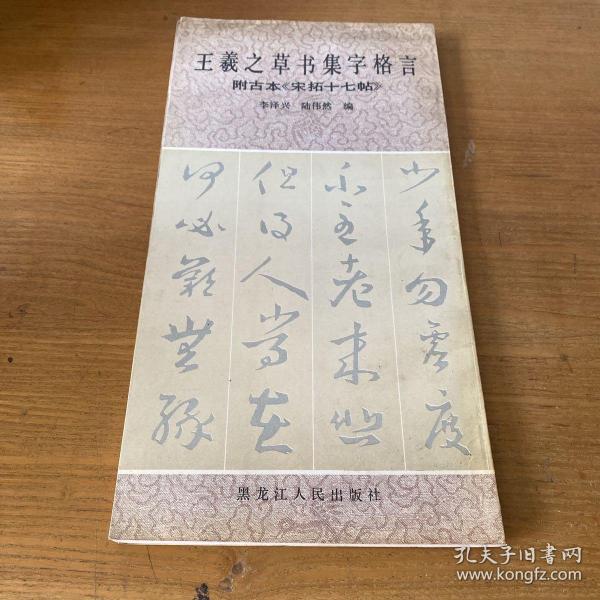 王羲之草书集字格言
附古本《宋拓十七帖》
李泽兴 陆伟然 编
少年勿虚度
不至老来
但得人常在
何必 无缘
黑龙江人民出版社
孔夫子旧书网
www.kongfz.com